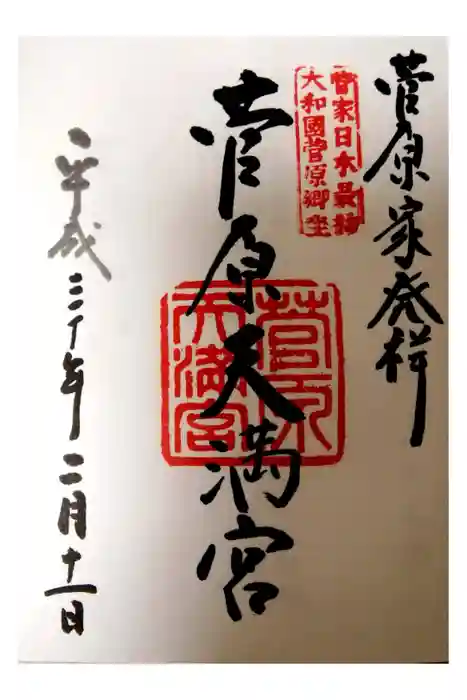 菅原家発祥
菅家日本最初
大和國菅原郷坐
菅原天満宮
菅原
天満宮
平成三十年二月十一日